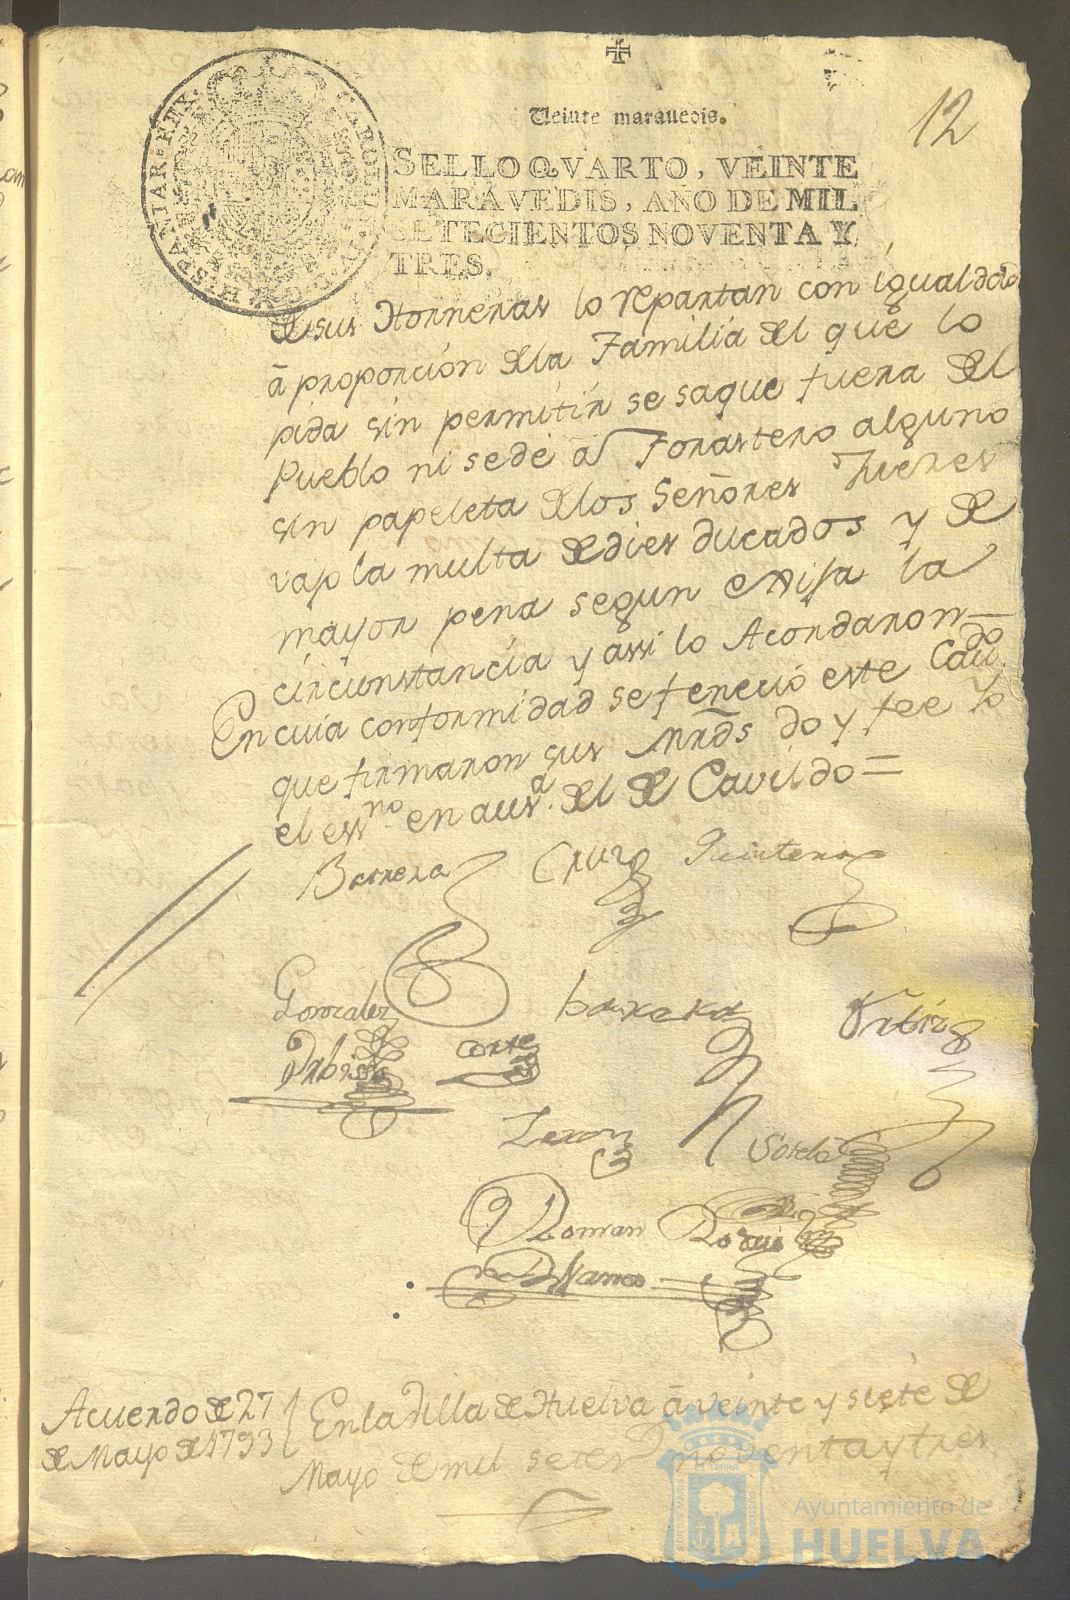 12
Veinte maravedis.
SELLO QVARTO, VEINTE
MARAVEDIS, AÑO DE MIL
SETECIENTOS NOVENTA Y
TRES.
HISPANIAR. REX.
de sus Horneras lo repartan con igualdad
â proporcion de la Familia del que lo
pida sin permitir se saque fuera del
Pueblo ni se dé a Forastero alguno
sin papeleta de los Señores Jueces
vajo la multa de dies ducados y de
mayor pena segun exija la
circunstancia y assi lo Acordaron
En cuia conformidad se feneció este Cavdo.
que firmaron sus Mrds doy fee Yo
el essno. en ausa. del de Cavildo =
Barrera Cruz Quintero
Gonzalez barrera Ortiz
Corte
Leron Sotelo
Roman
Acuerdo de 27
de Mayo de 1793
En la Villa de Huelva â veinte y siete de
Mayo de mil setecs noventa y tres
Ayuntamiento de
HUELVA